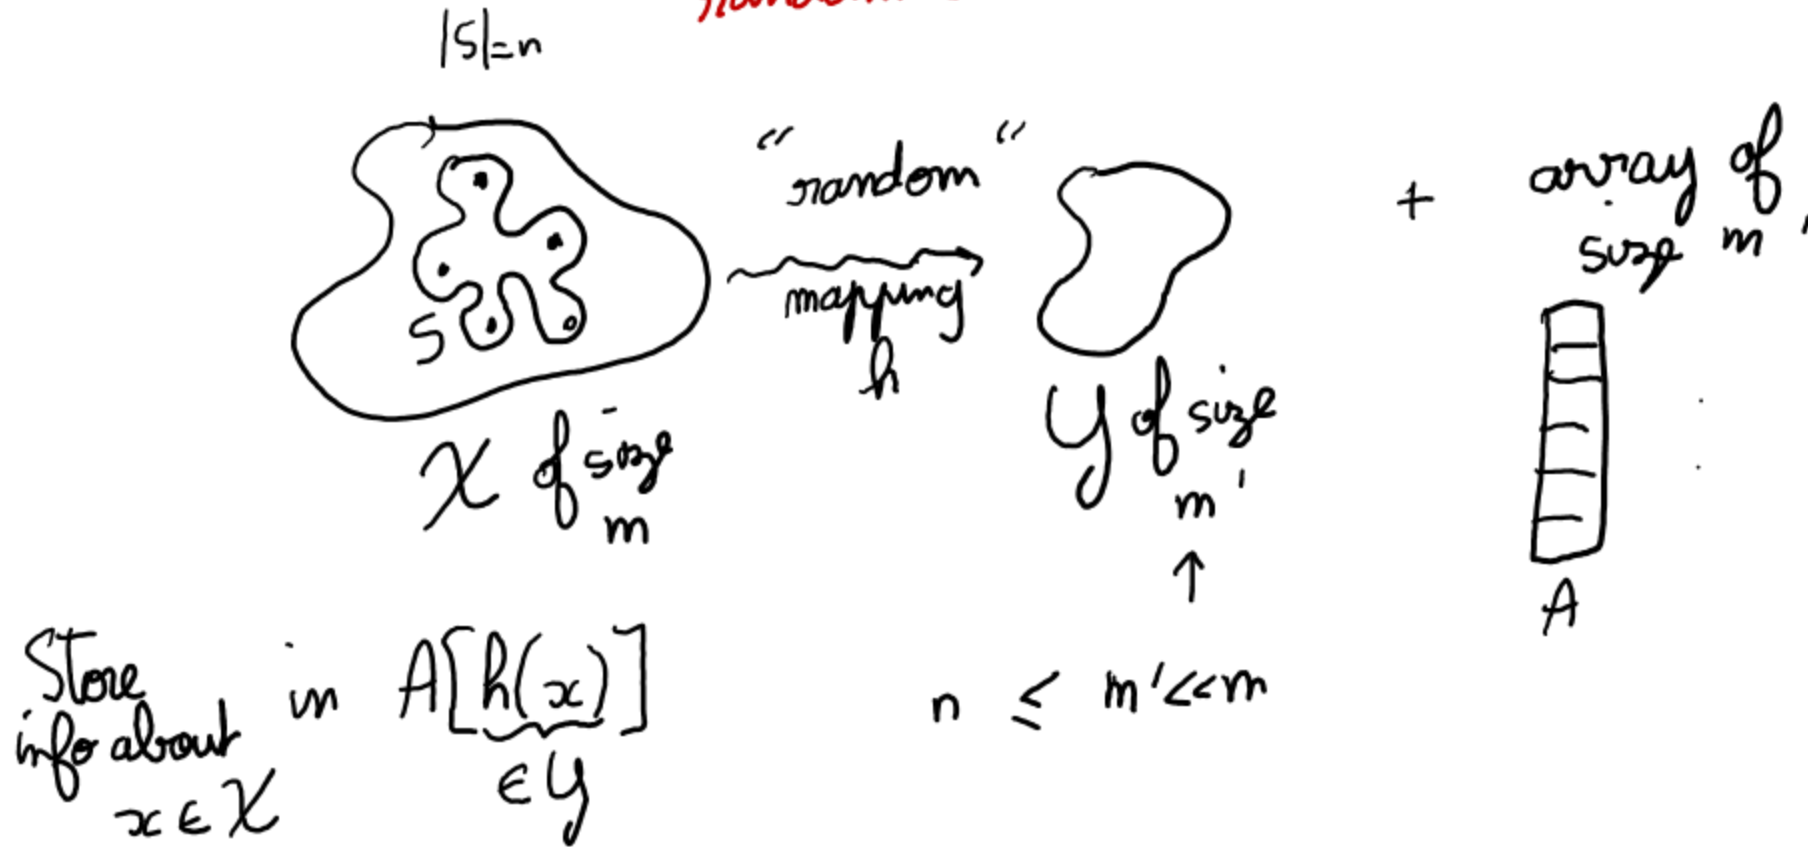 |S|=n
"random"
mapping
h
+
array of
size m'
S
X of size
m
Y of size
m'
↑
A
Store
info about
x ∈ X
in A[h(x)]
∈ Y
n ≤ m' << m